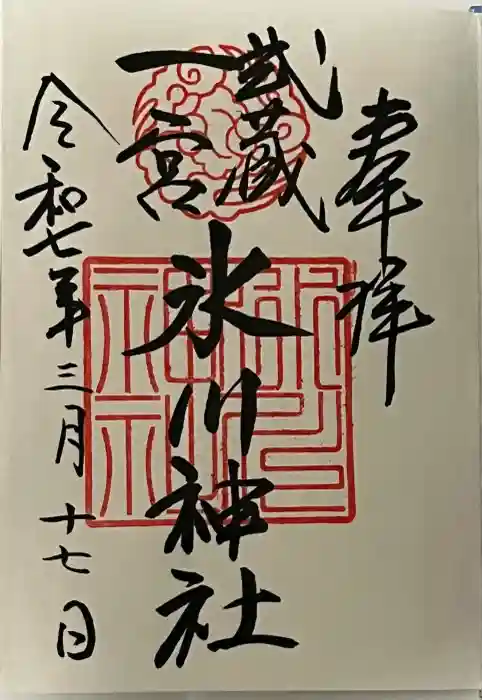 奉拝
武蔵
一宮
氷川神社
令和七年三月十七日